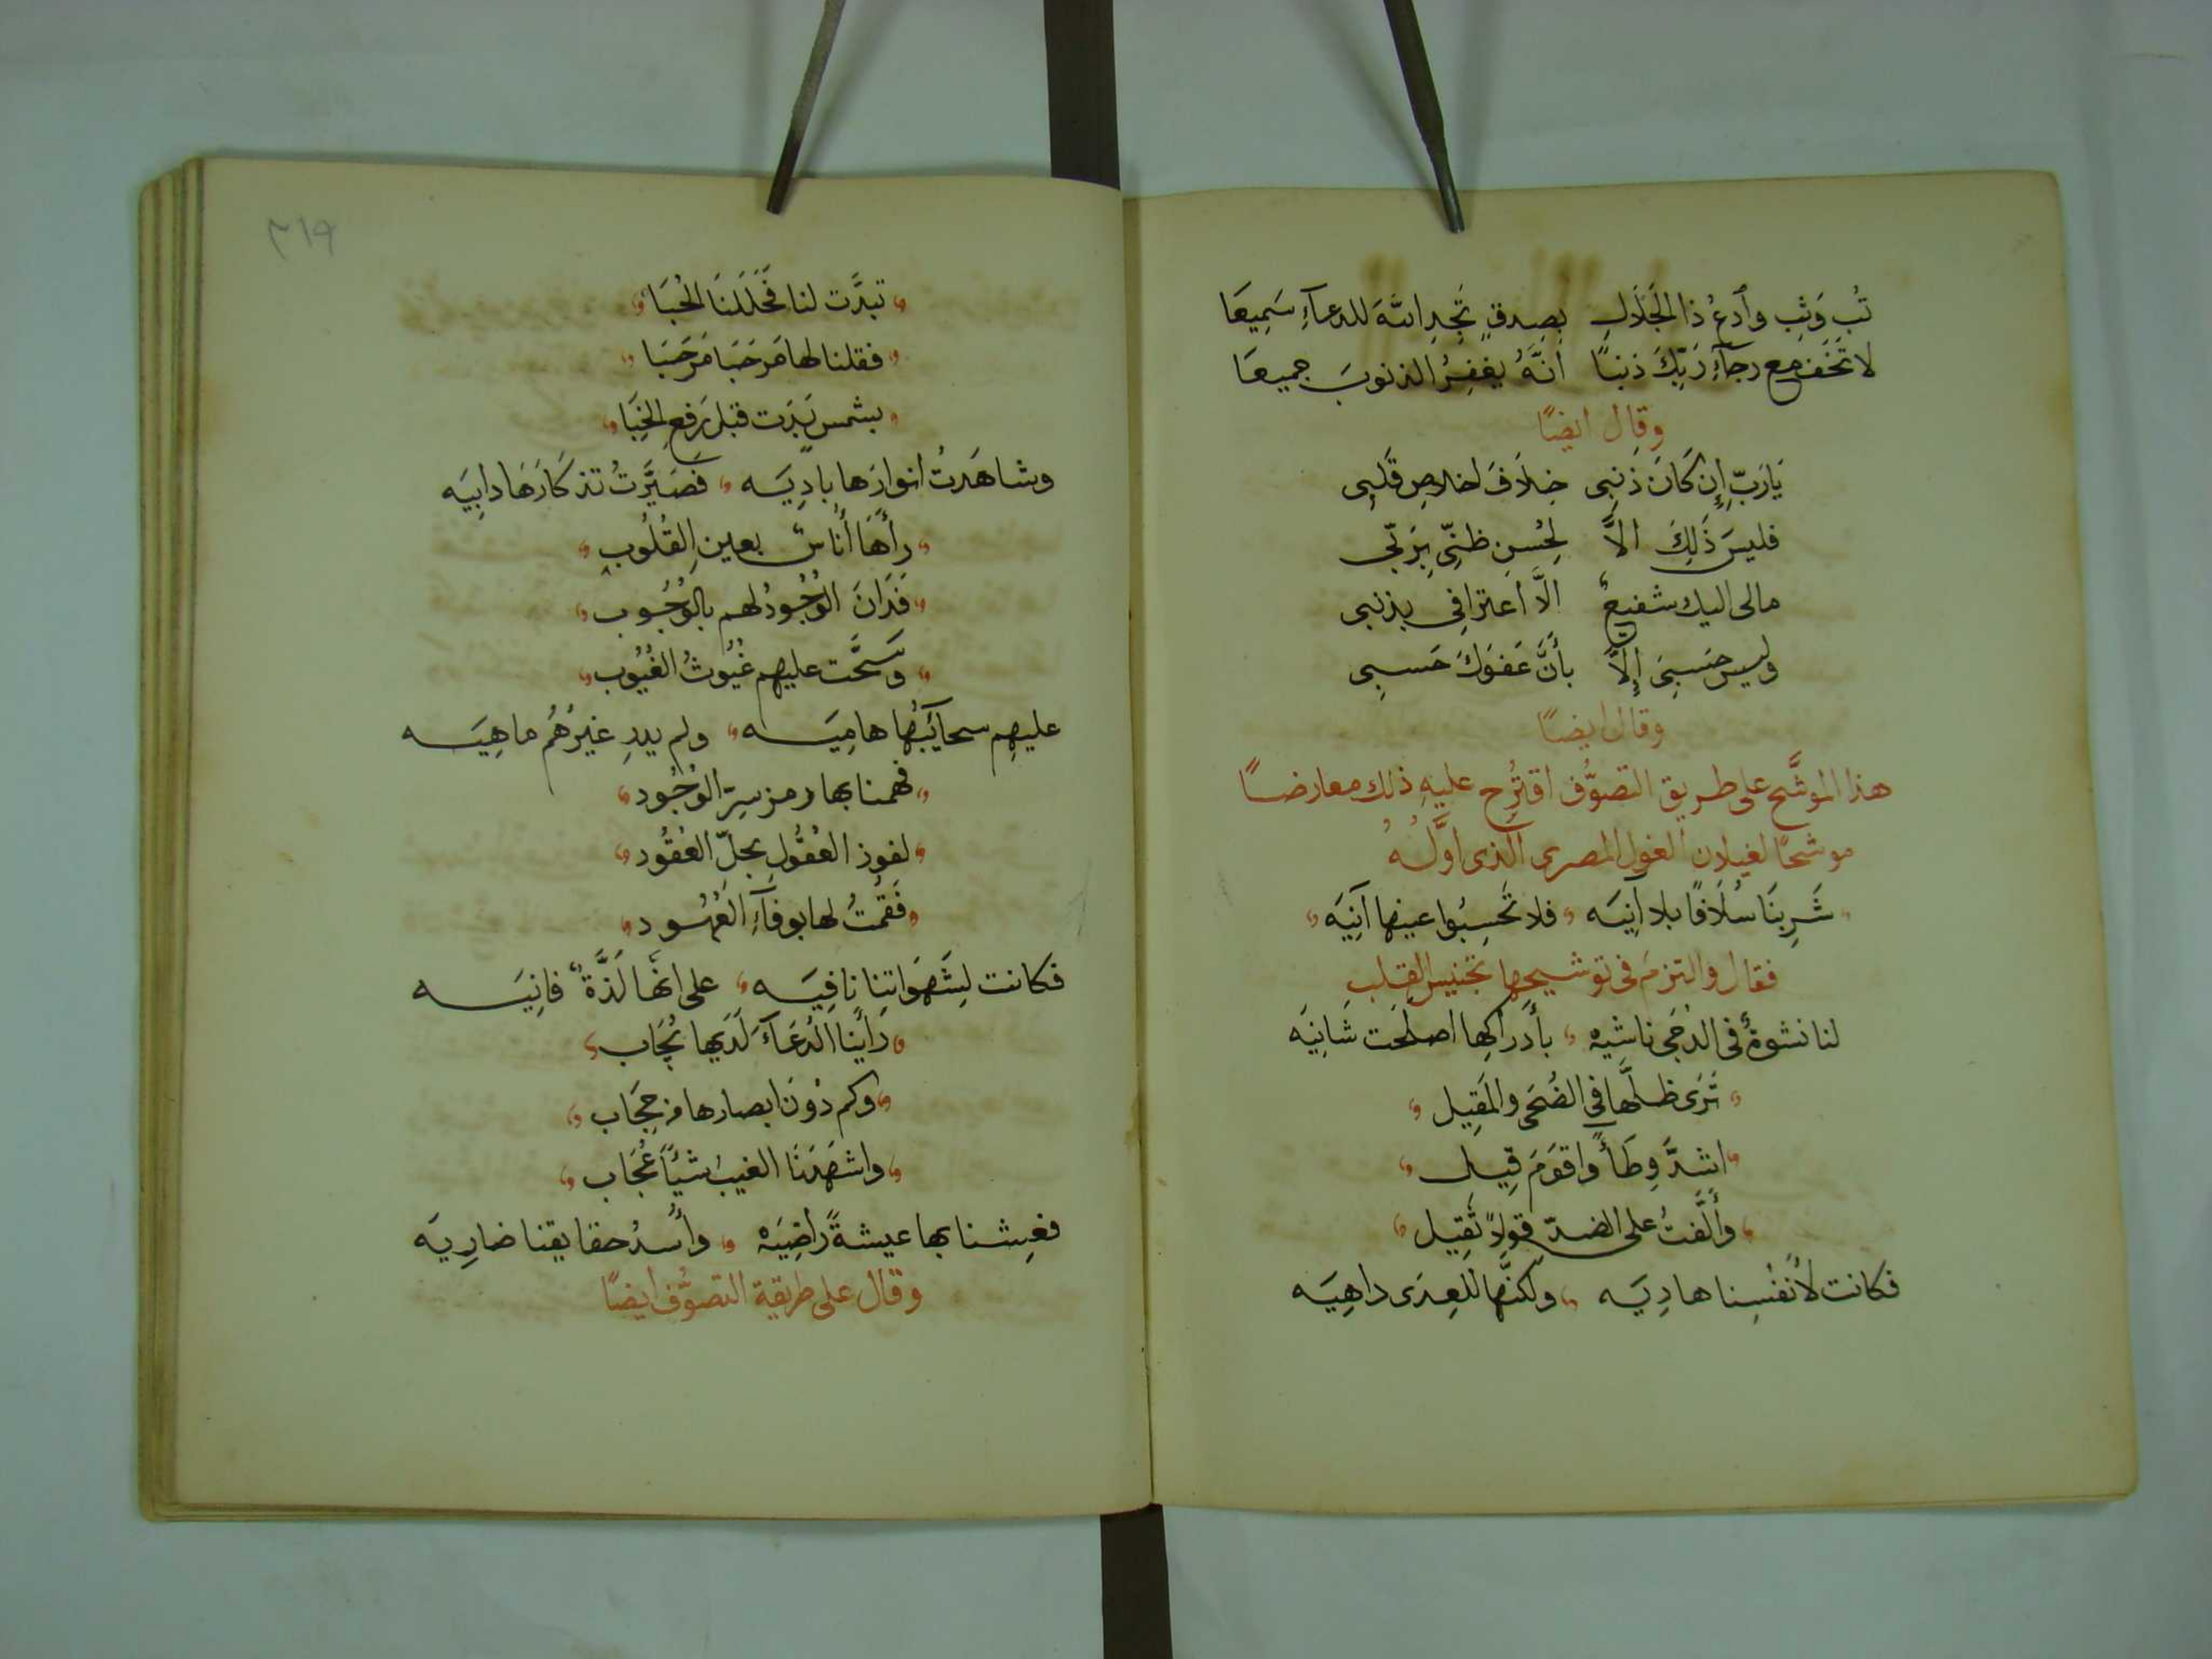 تُب وَثِب وَادعُ ذا الجَلَالِ بِصِدقٍ تَجِدِ اللهَ للدعآءِ سَمِيعَا
لا تَخَف مع رجآءِ رَبِّكَ ذنبًا انَّهُ يغفِرُ الذنوبَ جميعَا
وقال ايضًا
يَارَبِّ إِن كَانَ ذنبِى خِلَافَ اخلاصِ قَلبِى
فليسَ ذَلِكَ الاَّ لِحُسنِ ظنِّى بِرَبّى
مالى اليك شفيعٌ الاَّ اعترافى بذنبى
وليس حَسبِىَ إِلاَّ بأَنَّ عَفوَكَ حَسبِى
وقال ايضًا
هذا الموشَّح على طريق التصوُّف اقتُرِح عليهِ ذلك معارضًا
موشحًا لغيلان الغول المصرى الذى اوَّلُهُ
شَرِبنَا سُلَافًا بلا آنِيَه فلا تَحسِبُوا عينها آنِيَه
فقال والتزم فى توشيحها تجنيس القلب
لنا نشوةٌ فى الدجَى ناشيه بأَدراكِها اصلَحَت شَانِيَه
تَرَى ظلَّها فى الضُحَى والمَقِيل
اشدَّ وِطَأً واقوَمَ قِيل
وأَلَّفتُ على الضدّ قولاً ثَقِيل
فكانت لأَنفُسِنا هادِيَه ولكنَّها للعِدَى داهِيَه
٣١٩
تبدَّت لنا فَحَلَلنَا الحُبَا
فقلنا لها مَرحَبَا مَرحَبَا
بشمس بَدَت قبل رَفعِ الخِبَا
وشاهَدتُ انوارَها بادِيَه فصَيَّرتُ تذكَارَهَا دابِيَه
رأَهَا أُناسٌ بعينِ القُلُوب
فَدَانَ الوُجُودُ لهم بالوُجُوب
وَسَحَّت عليهم غُيُوثُ الغُيُوب
عليهِم سحآئبُها هامِيَه ولم يدرِ غيرُهُم ماهِيَه
فهمنا بها رمز سِرّ الوُجُود
لفوز العُقُول بحلّ العُقُود
فَقُمتُ لها بوفآءِ العُهُود
فكانت لِشَهَوَاتِنا نافِيَه على انها لَذَّةٌ فانِيَه
رَأينا الدُعَآءَ لَدَيها يُجَاب
وكم دُونَ ابصارها من حِجَاب
واشهَدَنَا الغيبُ شيًأ عُجَاب
فعِشنا بها عيشةً راضِيَه وأُسدُ حقايقنا ضارِيَه
وقال على طريقة التصوُّف ايضًا